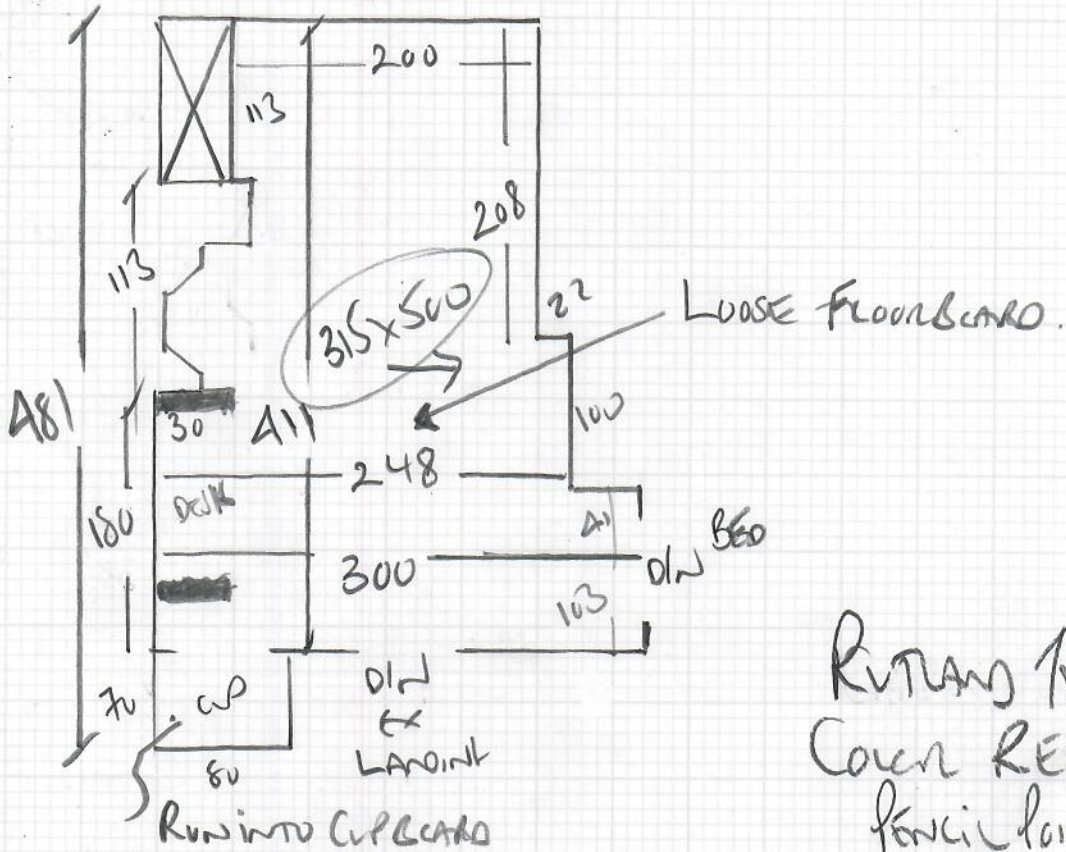 200
113
208
113
315 x 500
22
LOOSE FLOORBOARD.
A81
30
A11
100
248
180
DESK
A1
BED
300
D/N
103
70
CUP
D/N
EX
LANDING
80
RUN INTO CUPBOARD
RUTLAND
COLOUR RE
PENCIL POI